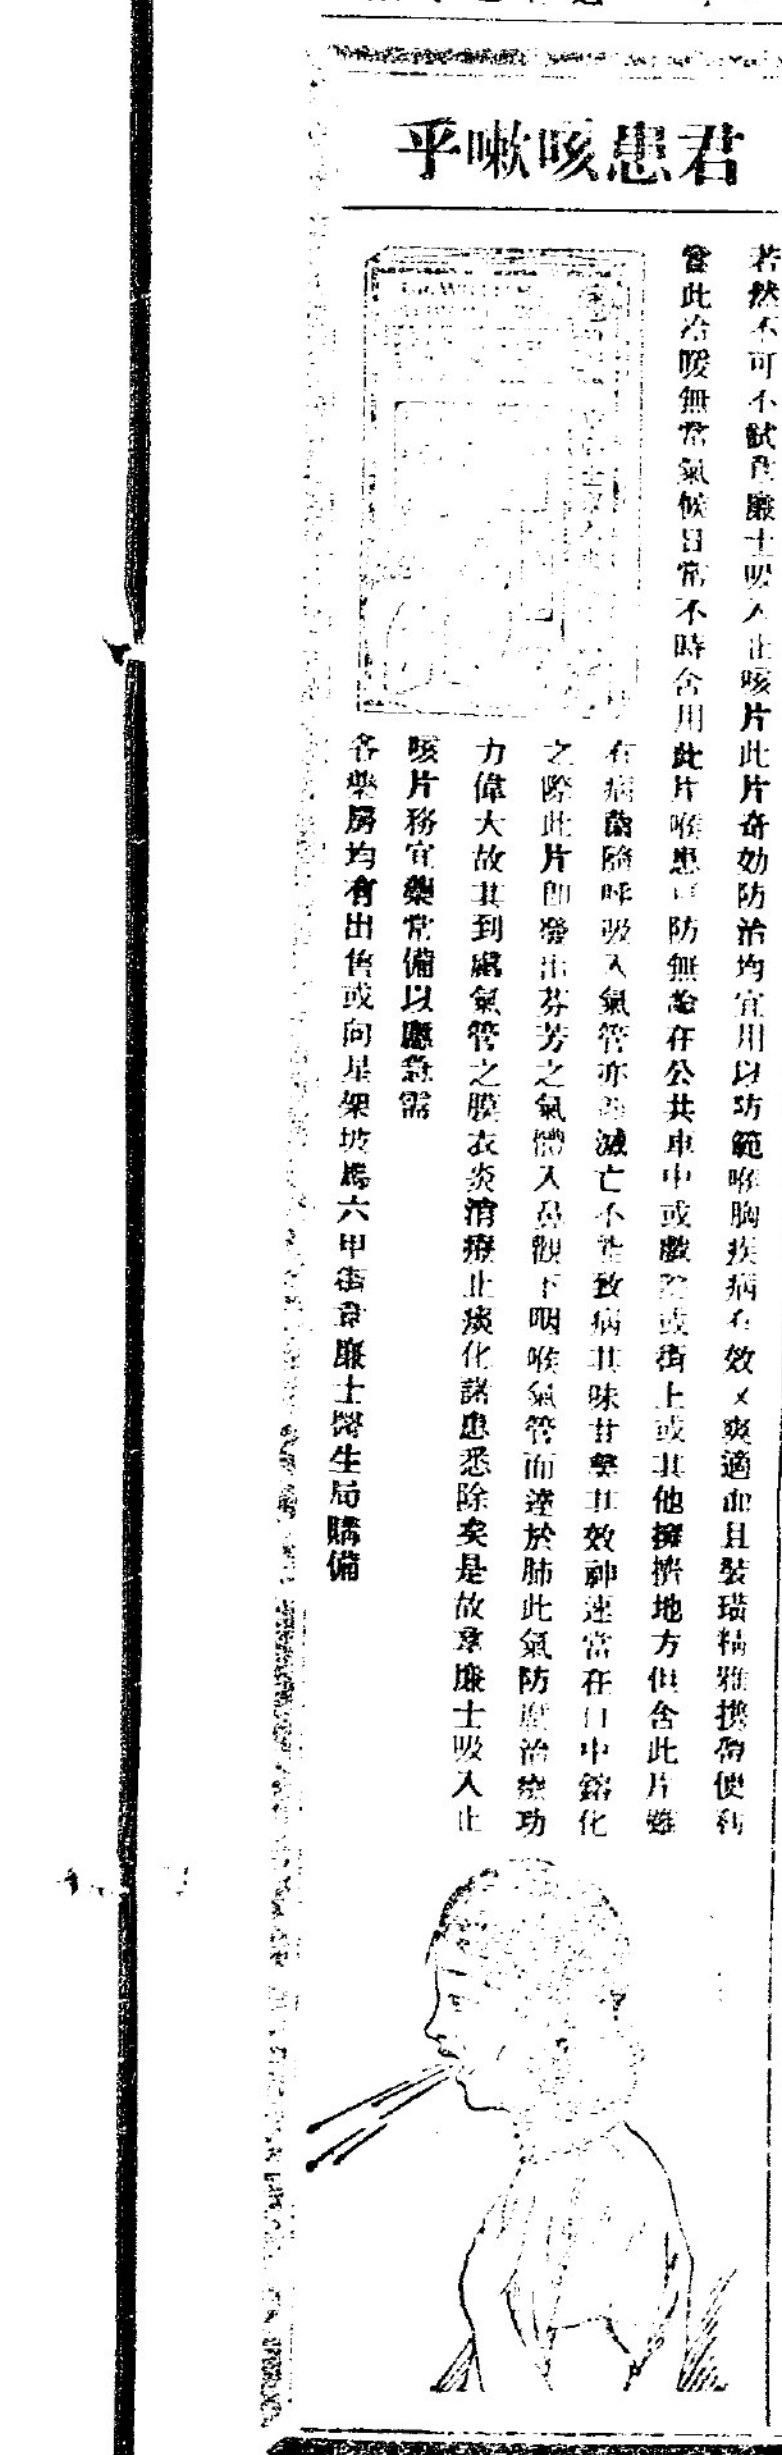 君患咳嗽乎
若然不可不試韋廉士吸入止咳片此片奇効防治均宜用以防範喉胸疾病有效又爽適而且裝璜精雅携帶便利
當此冷暖無常氣候日常不時含用此片喉患可防無論在公共車中或戲院或街上或其他擁擠地方但含此片雖
有病菌隨呼吸入氣管亦必滅亡不能致病其味甘美其效神速當在口中鎔化
之際此片即發出芬芳之氣體入鼻觀下咽喉氣管而達於肺此氣防腐治療功
力偉大故其到處氣管之膜衣炎消療止痰化諸患悉除矣是故韋廉士吸入止
咳片務宜藥常備以應急需
各藥房均有出售或向星架坡馬六甲街韋廉士醫生局購備